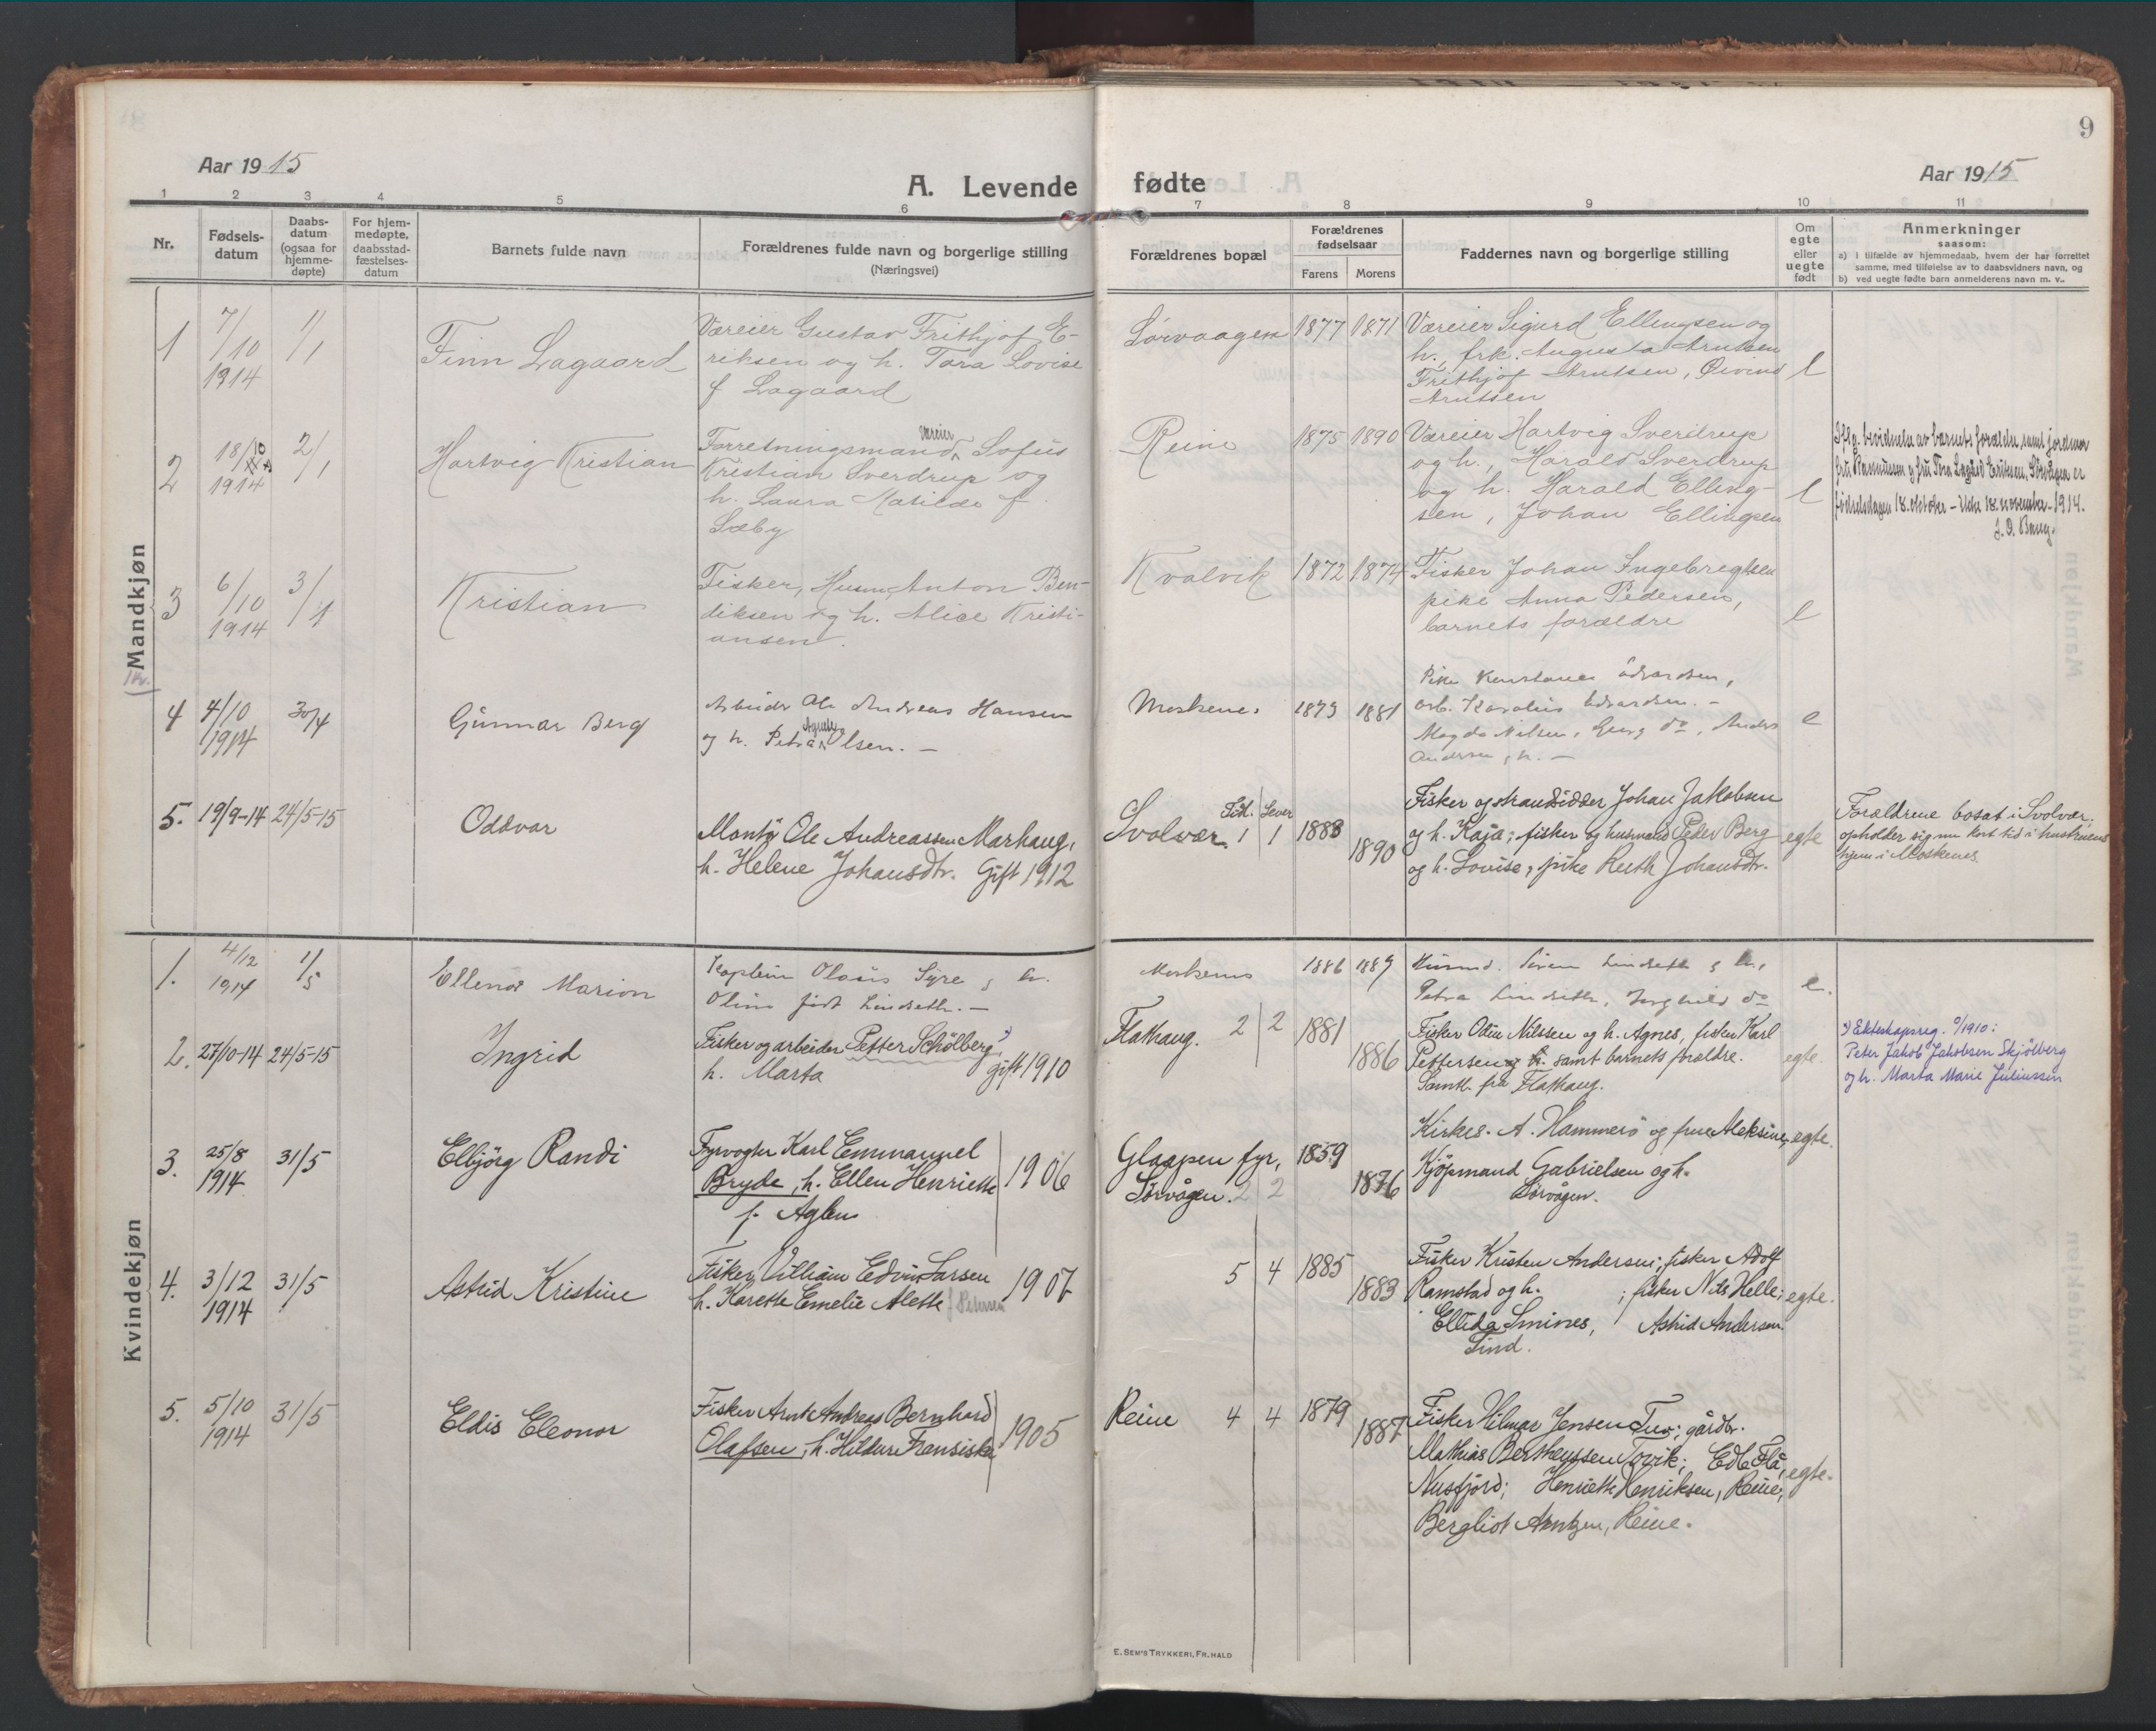 9
Aar 1915
A. Levende fødte
Aar 1915
1 2 3 4 5 6 7 8 9 10 11
Nr.
Fødsels-
datum
Daabs-
datum
(ogsaa for
hjemme-
døpte)
For hjem-
medøpte,
daabsstad-
fæstelses-
datum
Barnets fulde navn
Forældrenes fulde navn og borgerlige stilling
(Næringsvei)
Forældrenes bopæl
Forældrenes
fødselsaar
Farens Morens
Faddernes navn og borgerlige stilling
Om
egte
eller
uegte
født
Anmerkninger
saasom:
a) i tilfælde av hjemmedaab, hvem der har forrettet
samme, med tilføielse av to daabsvidners navn, og
b) ved uegte fødte barn anmelderens navn m. v..
Mandkjøn
1
7/10
1914
1/1
Finn Lagaard
Væreier Gustav Frithjof E-
riksen og h. Tora Lovise
f Lagaard
Sørvaagen
1877 1871
Væreier Sigurd Ellingsen og
h., frk. Augusta Arntsen
Frithjof Arntsen, Øivind
Arntsen
e
2
18/10
1914
2/1
Hartvig Kristian
Forretningsmand, Væreier Sofus
Kristian Sverdrup og
h. Laura Matilde f.
Sæby
Reine
1875 1890
Væreier Hartvig Sverdrup
og h., Harald Sverdrup
og h. Harald Elling-
sen, Johan Ellingsen
e
Iflg. bevidnelse av barnets forældre samt jordmor
fru Rasmussen og fru Tora Lagård Eriksen, Sørvågen er
fødselsdagen 18. oktober - ikke 18. november - 1914.
3
6/10
1914
3/1
Kristian
Fisker, Husm. Anton Ben-
diksen og h. Alice Kristi-
ansen.
Kvalvik
1872 1874
Fisker Johan Ingebregtsen
pike Anna Pedersen,
barnets forældre
e
4
4/10
1914
30/4
Gunnar Berg
Arbeider Ole Andreas Hansen
og h. Petra Olsen. -
Moskenes
1873 1881
Pike Konstanse Edvardsen,
arb. Karolius Edvardsen. -
Magda Nilsen, Georg do, Anders
Andersen, h. -
e
5.
19/9-14
24/5-15
Oddvar
Montør Ole Andreassen Marhaug,
h. Helene Johansdtr. Gift 1912
Svolvær.
Fød. Lever
1 1
1883
1890
Fisker og strandsidder Johan Jakobsen
og h. Kaja; fisker og husmand Peder Berg
og h. Lovise, pike Ruth Johansdtr.
egte
Forældrene bosat i Svolvær,
opholder sig nu kort tid i hustruens
hjem i Moskenes
Kvindekjøn
1.
4/12
1914
1/5
Ellenor Marion
Kaptein Olaus Syre og h.
Oline født Lindseth. -
Moskenes
1886 1889
Husmd. Søren Lindseth og h.,
Petra Lindseth, Torghild do
e.
2.
27/10-14
24/5-15
Ingrid
Fisker og arbeider Petter Schölberg
h. Marta gift 1910
Flathaug.
2 2
1881
1886
Fisker Odin Nilssen og h. Agnes, fisker Karl
Pettersen og h. samt barnets forældre.
Samtl. fra Flathaug.
egte.
Ekteskapsreg. 1910:
Peter Jakob Jakobsen Skjölberg
og h. Marta Marie Juliussen
3.
25/8
1914
31/5
Elbjörg Randi
Fyrvogter Karl Emmanuel
Bryde, h. Ellen Henriette
f. Aglen
1906
Glaapen fyr,
Sørvågen. 2 2
1859
1876
Kirkes. A. Hammerö og frue Aleksine,
Kjöpmand Gabrielsen og h.
Sörvågen.
egte.
4.
3/12
1914
31/5
Astrid Kristine
Fisker Villiam Edvin Larsen
h. Karette Emelie Alette
1907
5 4
1885
1883
Fisker Kristen Andersen; fisker Adolf
Ramstad og h. ; fisker Nils Helle;
Ellida Smines, Astrid Andersen.
Tind.
egte.
5.
5/10
1914
31/5
Eldis Eleonor
Fisker Arnt Andreas Bernhard
Olafsen, h. Hildur Fransiska
1905
Reine
4 4
1879
1887
Fisker Hilmar Jensen Tuv; gårdbr.
Mathias Bertheussen Tovik; Edl. Flå,
Nusfjord; Henriette Henriksen, Reine,
Bergliot Arntzen, Reine.
egte.
E. SEM'S TRYKKERI, FR.HALD